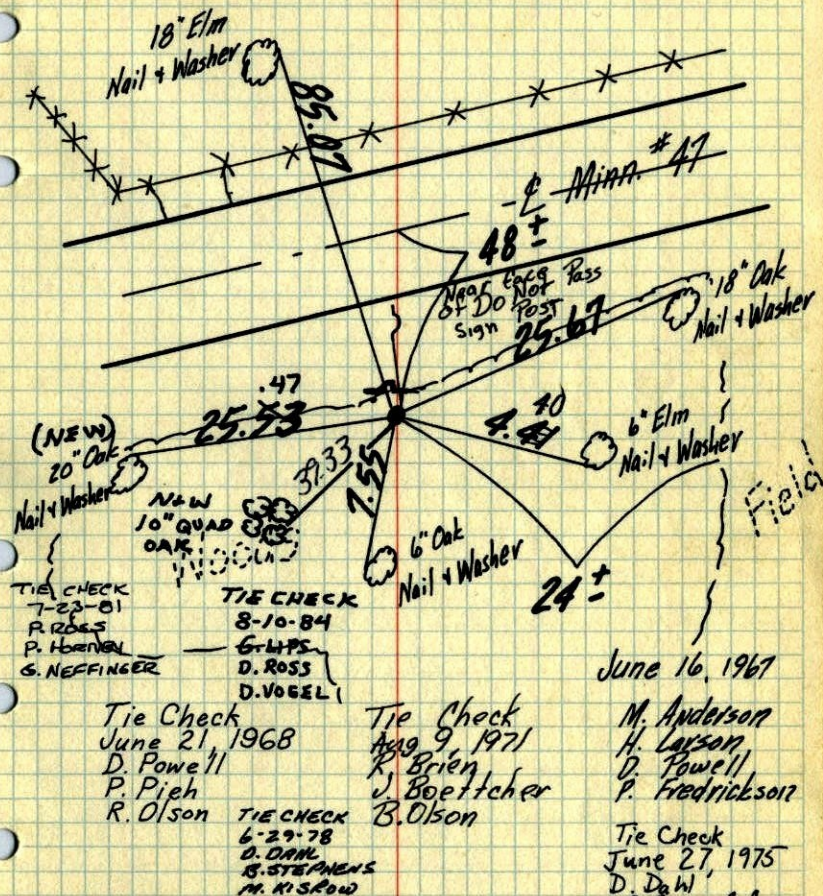 18" Elm
Nail & Washer
85.07
℄ Minn. #47
48 ±
Near face
of Do Not Pass
Sign Post
25.67
18" Oak
Nail & Washer
.47
25.53
(NEW)
20" Oak
Nail & Washer
40
4.41
6" Elm
Nail & Washer
39.33
7.55
NEW
10" QUAD
OAK
Woods
6" Oak
Nail & Washer
24 ±
Field
TIE CHECK
7-23-81
P. ROSS
P. HORNEY
G. NEFFINGER
TIE CHECK
8-10-84
G. LIPS
D. ROSS
D. VOGEL
June 16, 1967
M. Anderson
H. Larson
D. Powell
P. Fredrickson
Tie Check
June 21, 1968
D. Powell
P. Pieh
R. Olson
Tie Check
Aug 9, 1971
R. Brien
J. Boettcher
B. Olson
TIE CHECK
6-29-78
D. DAHL
B. STEPHENS
M. KISROW
Tie Check
June 27, 1975
D. Dahl